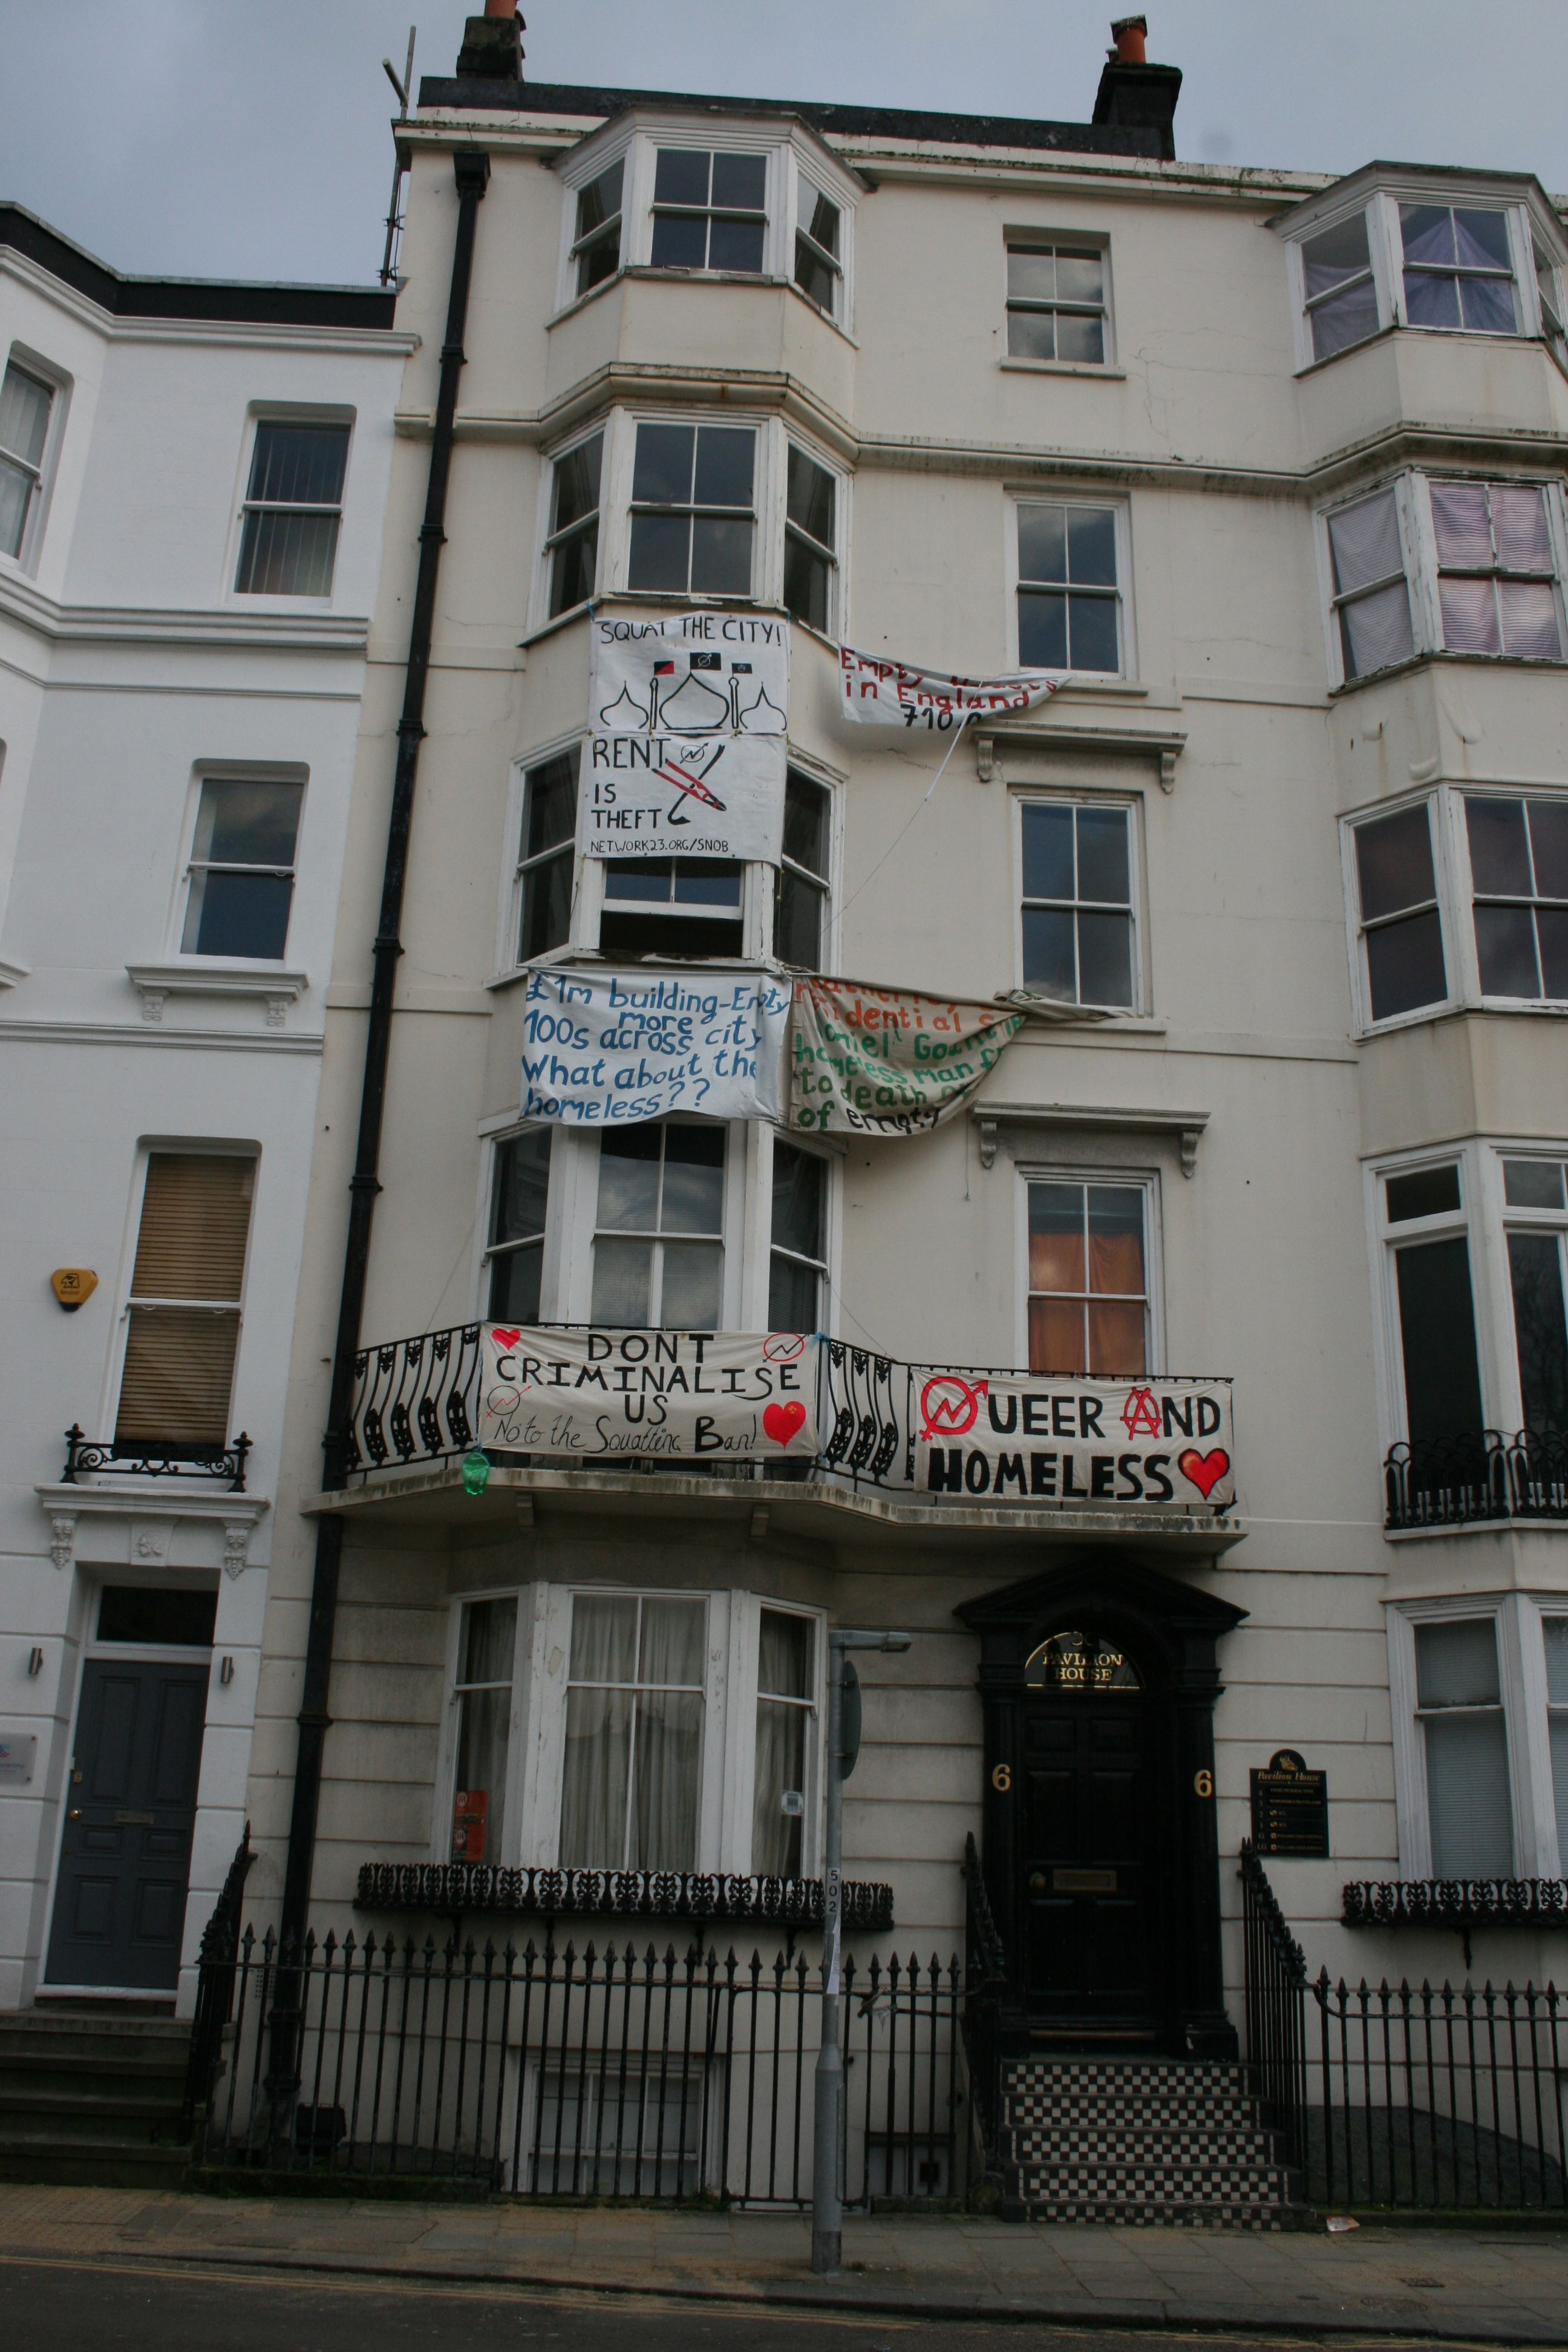 SQUAT THE CITY!
RENT
IS
THEFT
NETWORK23.ORG/SNOB
Empty
in England
710
£1m building-Empty
more
100s across city
What about the
homeless??
idential
Daniel Gaunt
homeless man
to death
of empty
DONT
CRIMINALISE
US
No to the Squatting Ban!
QUEER AND
HOMELESS
PAVILION
HOUSE
6
6
Pavilion House
502